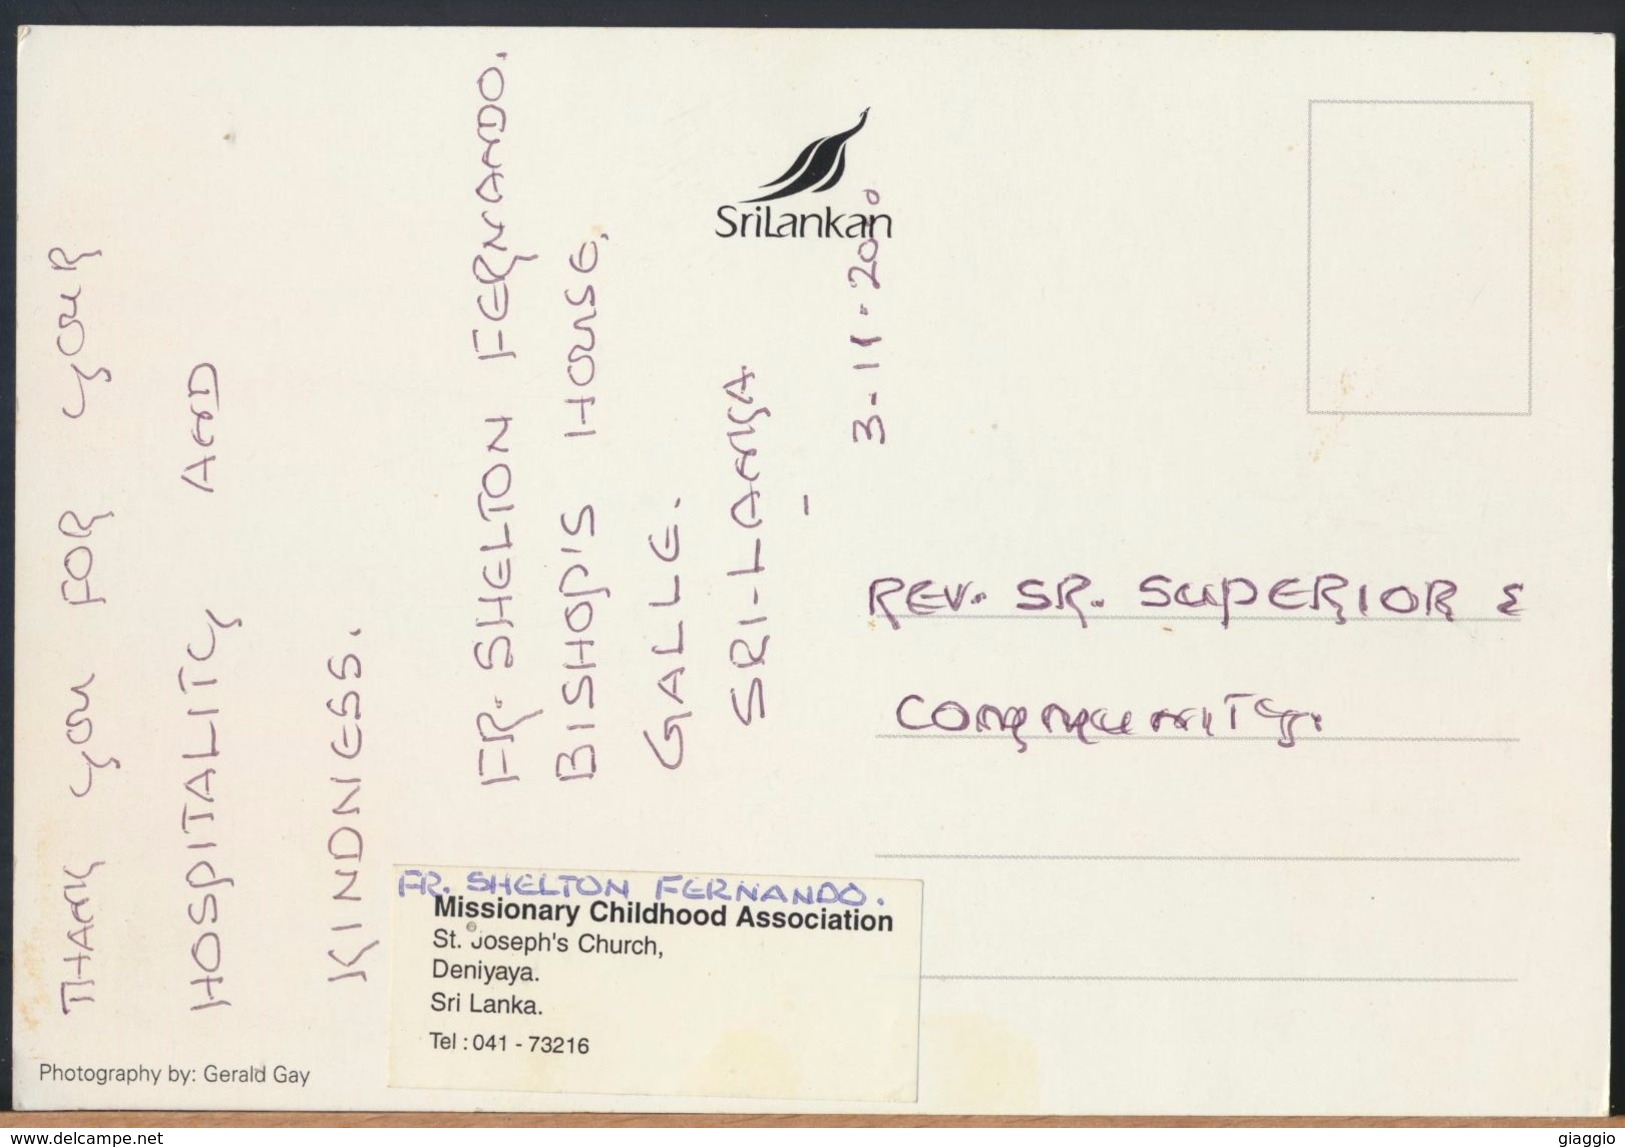 THANK YOU FOR YOUR
HOSPITALITY AND
KINDNESS.
FR. SHELTON FERNANDO.
BISHOP'S HOUSE,
GALLE.
SRI-LANKA
3-11-2000
SriLankan
REV. SR. SUPERIOR &
COMMUNITY.
FR. SHELTON FERNANDO.
Missionary Childhood Association
St. Joseph's Church,
Deniyaya.
Sri Lanka.
Tel : 041 - 73216
Photography by: Gerald Gay
www.delcampe.net
giaggio